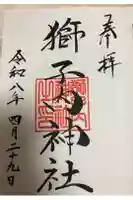 奉拝
獅子神社
令和八年四月二十九日